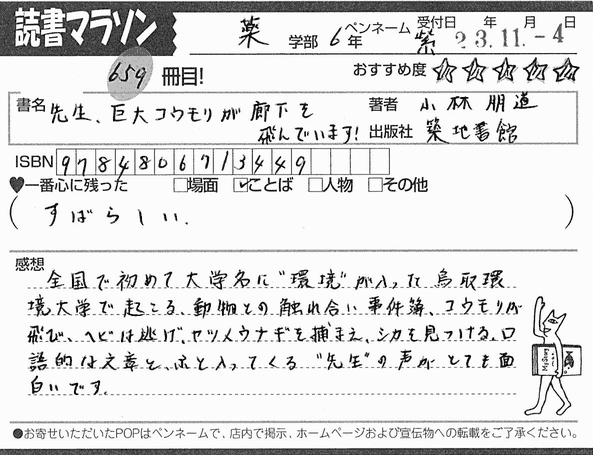 読書マラソン
薬 学部 6年 ペンネーム 紫 受付日 年 月 日
23.11.-4
659 冊目! おすすめ度 ☆☆☆☆☆
書名 先生、巨大コウモリが廊下を飛んでいます! 著者 小林朋道
出版社 築地書館
ISBN 9784806713449
♥一番心に残った □場面 ☑ことば □人物 □その他
( すばらしい. )
感想
全国で初めて大学名に"環境"が入った鳥取環
境大学で起こる、動物との触れ合い事件簿、コウモリが
飛び、ヘビは逃げ、ヤツメウナギを捕まえ、シカを見つける。口
語的な文章と、ふと入ってくる"先生"の声がとても面
白いです。
●お寄せいただいたPOPはペンネームで、店内で掲示、ホームページおよび宣伝物への転載をご了承ください。